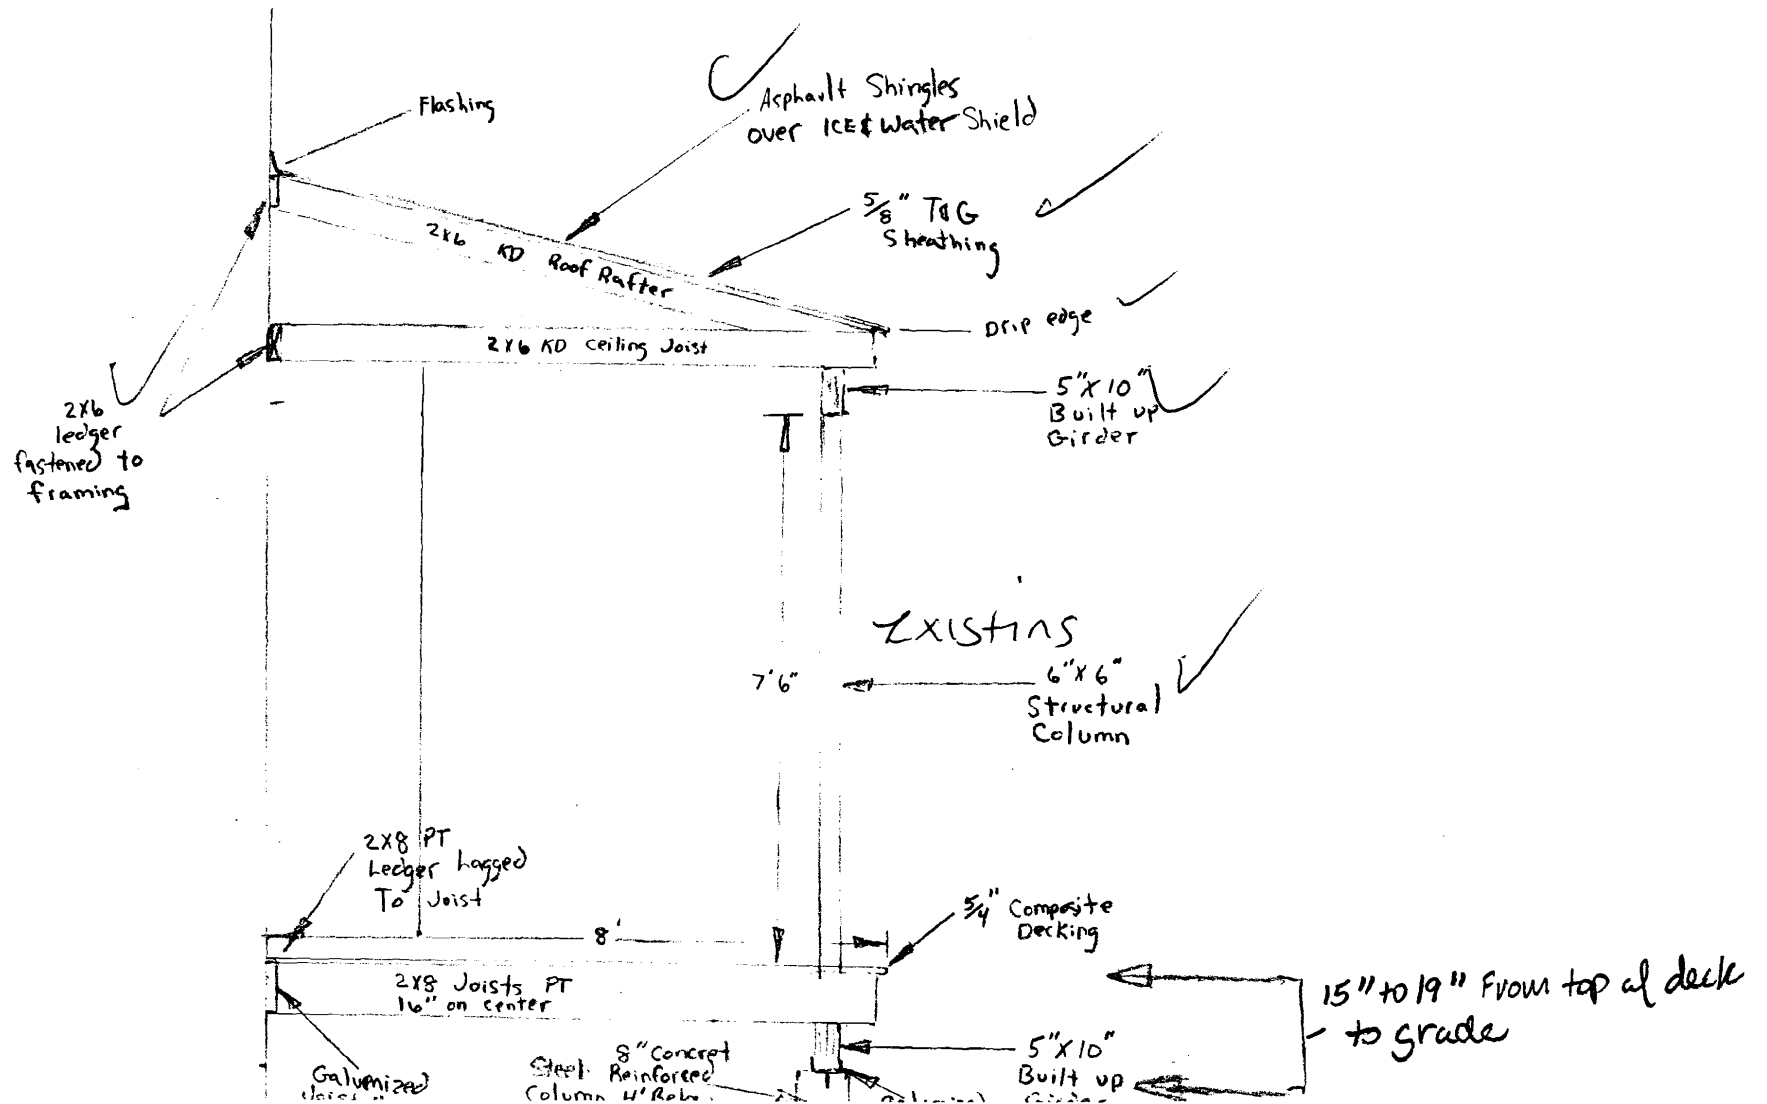 Flashing
Asphault Shingles
over ICE & Water Shield
5/8" T&G
Sheathing
2x6 KD Roof Rafter
Drip edge
2x6 KD Ceiling Joist
5"x10"
Built up
Girder
2x6
ledger
fastened to
framing
Existing
7'6"
6"x6"
Structural
Column
2x8 PT
Ledger Lagged
To Joist
5/4" Composite
Decking
8'
2x8 Joists PT
16" on center
15" to 19" From top of deck
to grade
5"x10"
Built up
8" Concret
Steel Reinforced
Column 4'
Galvenized